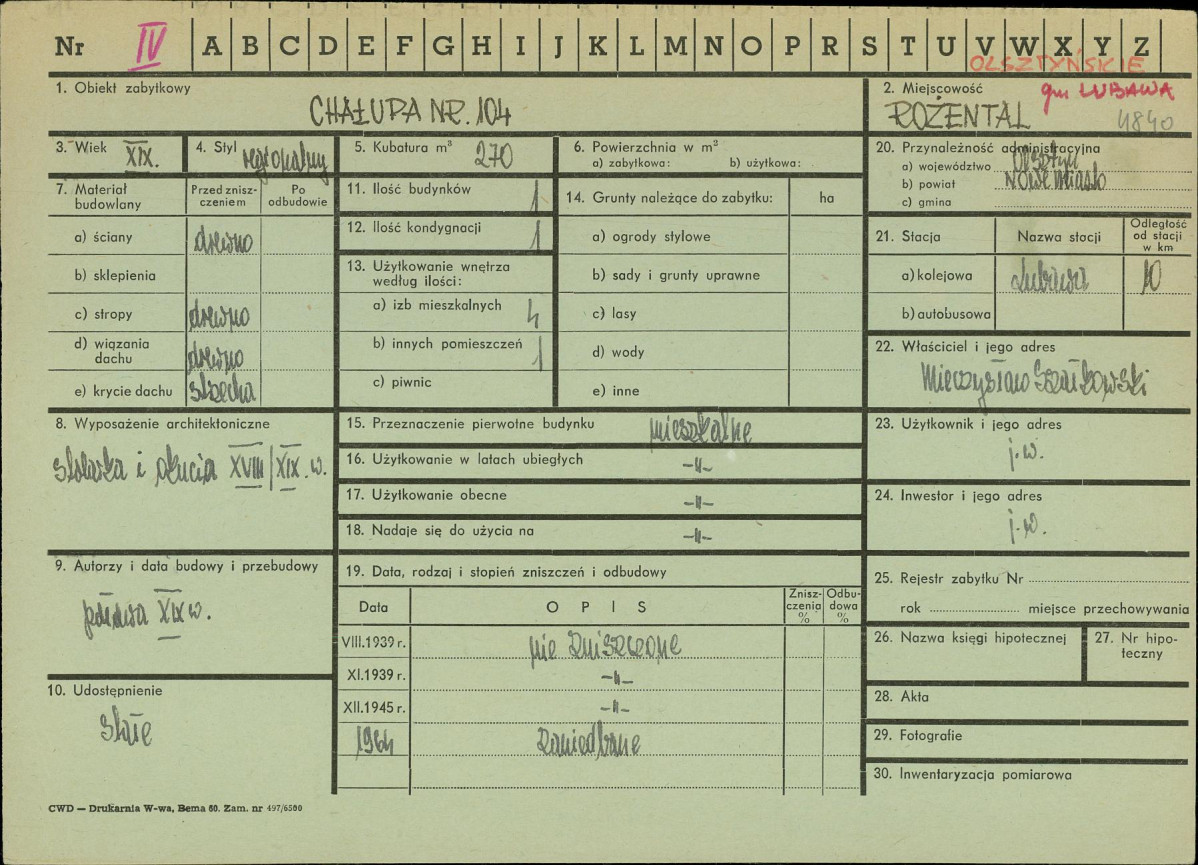 Nr IV A B C D E F G H I J K L M N O P R S T U V W X Y Z
OLSZTYŃSKIE
1. Obiekt zabytkowy
CHAŁUPA NR. 104
2. Miejscowość gm LUBAWA
ROŻENTAL 4840
3. Wiek XIX.
4. Styl regionalny
5. Kubatura m³ 270
6. Powierzchnia w m²
a) zabytkowa: b) użytkowa:
20. Przynależność administracyjna
a) województwo Olsztyn
b) powiat Nowe Miasto
c) gmina
7. Materiał budowlany
Przed zniszczeniem
Po odbudowie
a) ściany drewno
b) sklepienia
c) stropy drewno
d) wiązania dachu drewno
e) krycie dachu strzecha
11. Ilość budynków 1
12. Ilość kondygnacji 1
13. Użytkowanie wnętrza
według ilości:
a) izb mieszkalnych 4
b) innych pomieszczeń 1
c) piwnic
14. Grunty należące do zabytku: ha
a) ogrody stylowe
b) sady i grunty uprawne
c) lasy
d) wody
e) inne
21. Stacja Nazwa stacji
Odległość
od stacji
w km
a) kolejowa Lubawa 10
b) autobusowa
22. Właściciel i jego adres
Mieczysław Szałkowski
8. Wyposażenie architektoniczne
stolarka i okucia XVIII/XIX. w.
15. Przeznaczenie pierwotne budynku mieszkalne
16. Użytkowanie w latach ubiegłych -"-
17. Użytkowanie obecne -"-
18. Nadaje się do użycia na -"-
23. Użytkownik i jego adres
j.w.
24. Inwestor i jego adres
j.w.
9. Autorzy i data budowy i przebudowy
połowa XIX w.
10. Udostępnienie
stałe
19. Data, rodzaj i stopień zniszczeń i odbudowy
Data OPIS Zniszczenia % Odbudowa %
VIII.1939 r. nie zniszczone
XI.1939 r. -"-
XII.1945 r. -"-
1964 zaniedbane
25. Rejestr zabytku Nr
rok miejsce przechowywania
26. Nazwa księgi hipotecznej
27. Nr hipoteczny
28. Akta
29. Fotografie
30. Inwentaryzacja pomiarowa
CWD — Drukarnia W-wa, Bema 60. Zam. nr 497/6500